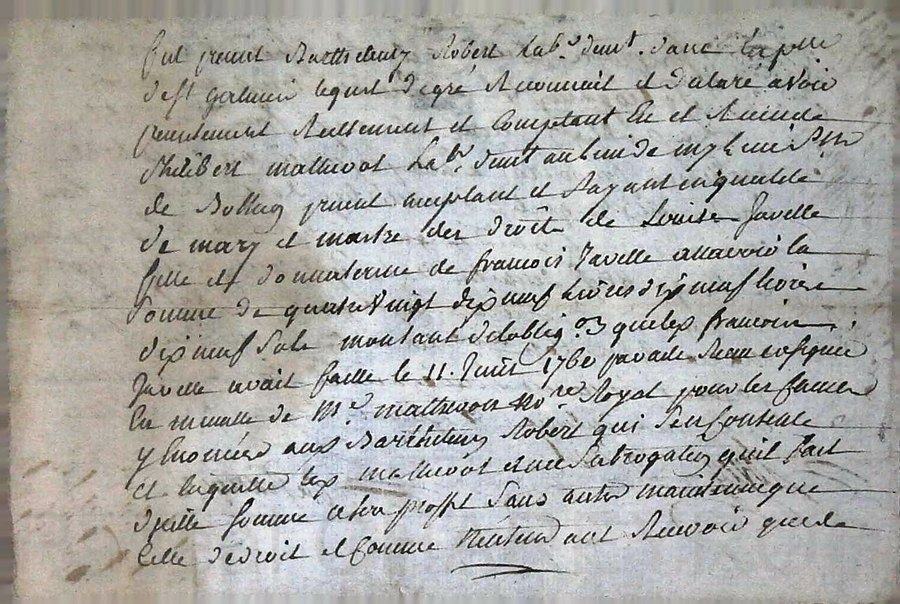 fut present Barthelemy Robert Lab.r dem.t dans la p.sse
de st germain lequel de gré Reconnait et declaré avoir
presentement Reellement et Comptant Eu et Receu de
Philibert mathevot Lab.r demt au lieu de
de present acceptant et payant en qualité
de mary et maitre des droits de Louise Javelle
fille et donnataire de francois Javelle assavoir la
somme de quatre Vingt dix neuf Livres dix neuf livres
dix neuf Sols montant de l'oblig.on que led francois
Javelle avait faitte le 11. Juin 1760
En minutte de M.e mathevon No.re Royal pour les Causes
y Enoncées aud Barthelemy Robert qui s'en Contente
Et En quitte led mathevot avec Subrogation qu'il fait
de pille somme a son proffit Sans autre maintenue que
Celle de droit et Comme